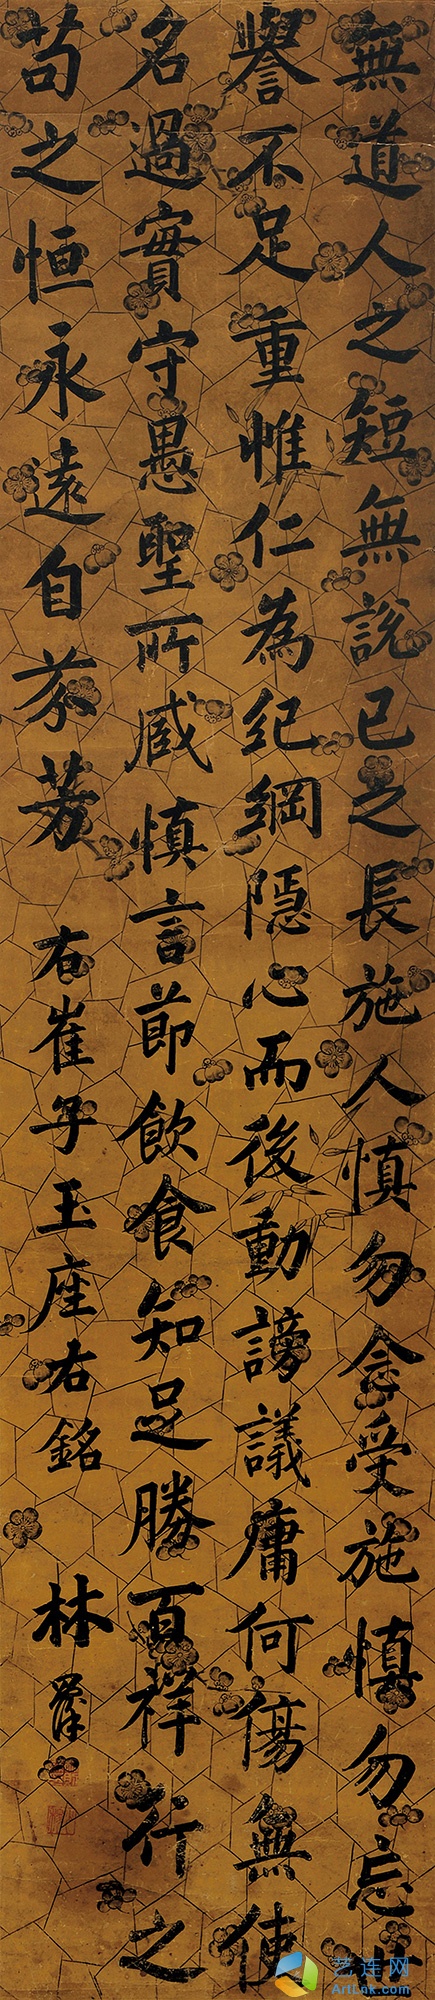 無道人之短無說己之長施人慎勿念受施慎勿忘世
譽不足重惟仁為紀綱隱心而後動謗議庸何傷無使
名過實守愚聖所臧慎言節飲食知足勝百祥行之
苟之恒永遠自芬芳 右崔子玉座右銘 林
艺连网
ArtLnk.com